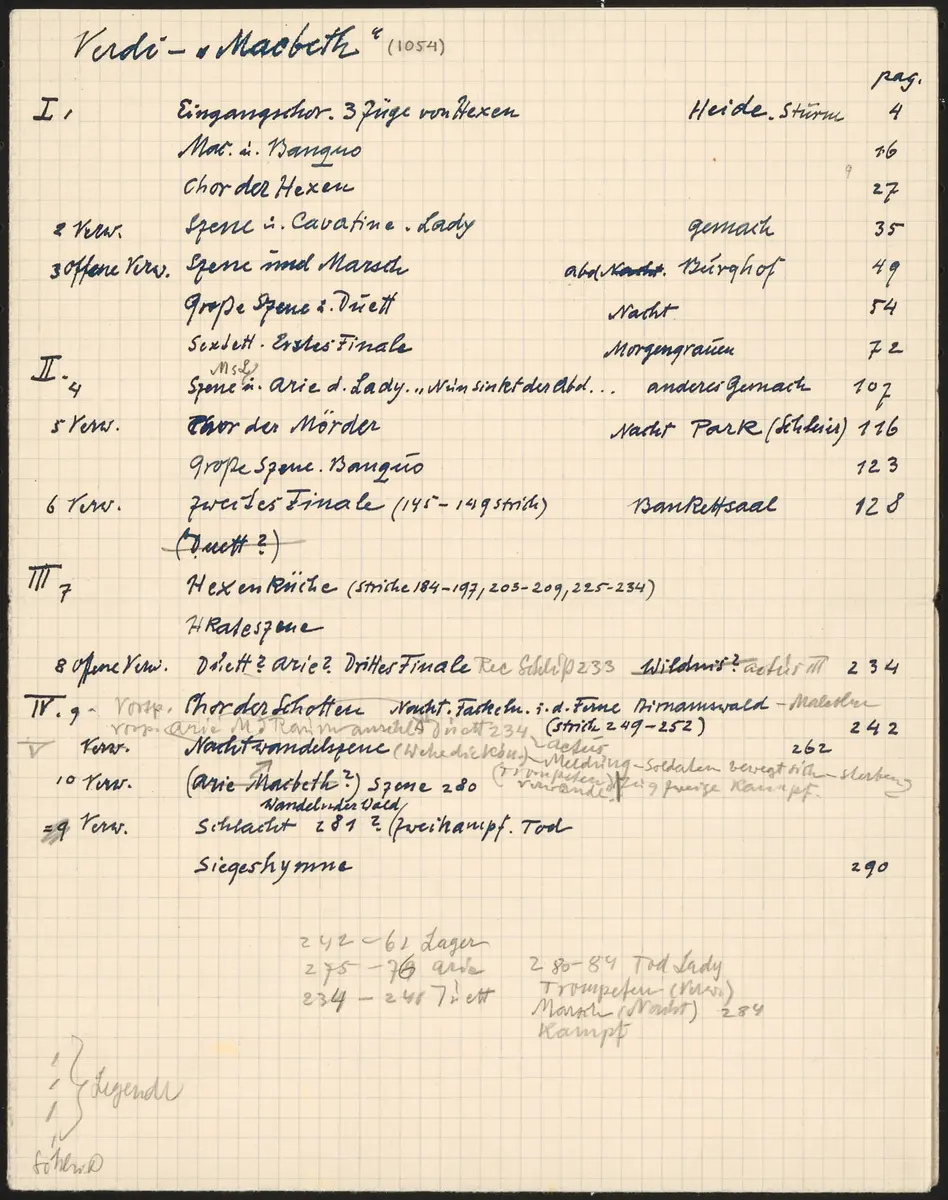 Verdi – „Macbeth“ (1054)
pag.
I, Eingangschor. 3 Züge von Hexen Heide. Sturm 4
Mac. u. Banquo 16
Chor der Hexen 27
2 Verw. Szene u. Cavatine. Lady Gemach 35
3 offene Verw. Szene und Marsch abd. Nacht. Burghof 49
Große Szene u. Duett Nacht 54
Sextett. Erstes Finale Morgengrauen 72
II. 4 Szene u. Arie d. Lady. „Nun sinkt der Abd... anderes Gemach 107
5 Verw. Chor der Mörder Nacht Park (Schleier) 116
Große Szene. Banquo 123
6 Verw. Zweites Finale (145–149 Strich) Bankettsaal 128
(Duett?)
III 7 Hexenküche (Striche 184–197, 203–209, 225–234)
HKateszene
8 offene Verw. Duett? Arie? Drittes Finale Rec Schluß 233 Wildnis? actus III 234
IV. 9 - Vorsp. Chor der Schotten Nacht. Fackeln. i. d. Ferne Birnamswald – Malcolm
vorsp. Arie M. Duett 234 (Strich 249–252) 242
V Verw. Nachtwandelszene – actus 262
– Meldung – Soldaten bewegt sich – sterben
10 Verw. (Arie Macbeth?) Szene 280 (Trompeten) Zweige Kampf.
Wandelnder Wald
=9 Verw. Schlacht 281? (Zweikampf. Tod
Siegeshymne 290
242 – 61 Lager
275 – 76 Arie
234 – 241 Duett
280–84 Tod Lady
Trompeten (Verw.)
Marsch (Nacht) 284
Kampf
Legende